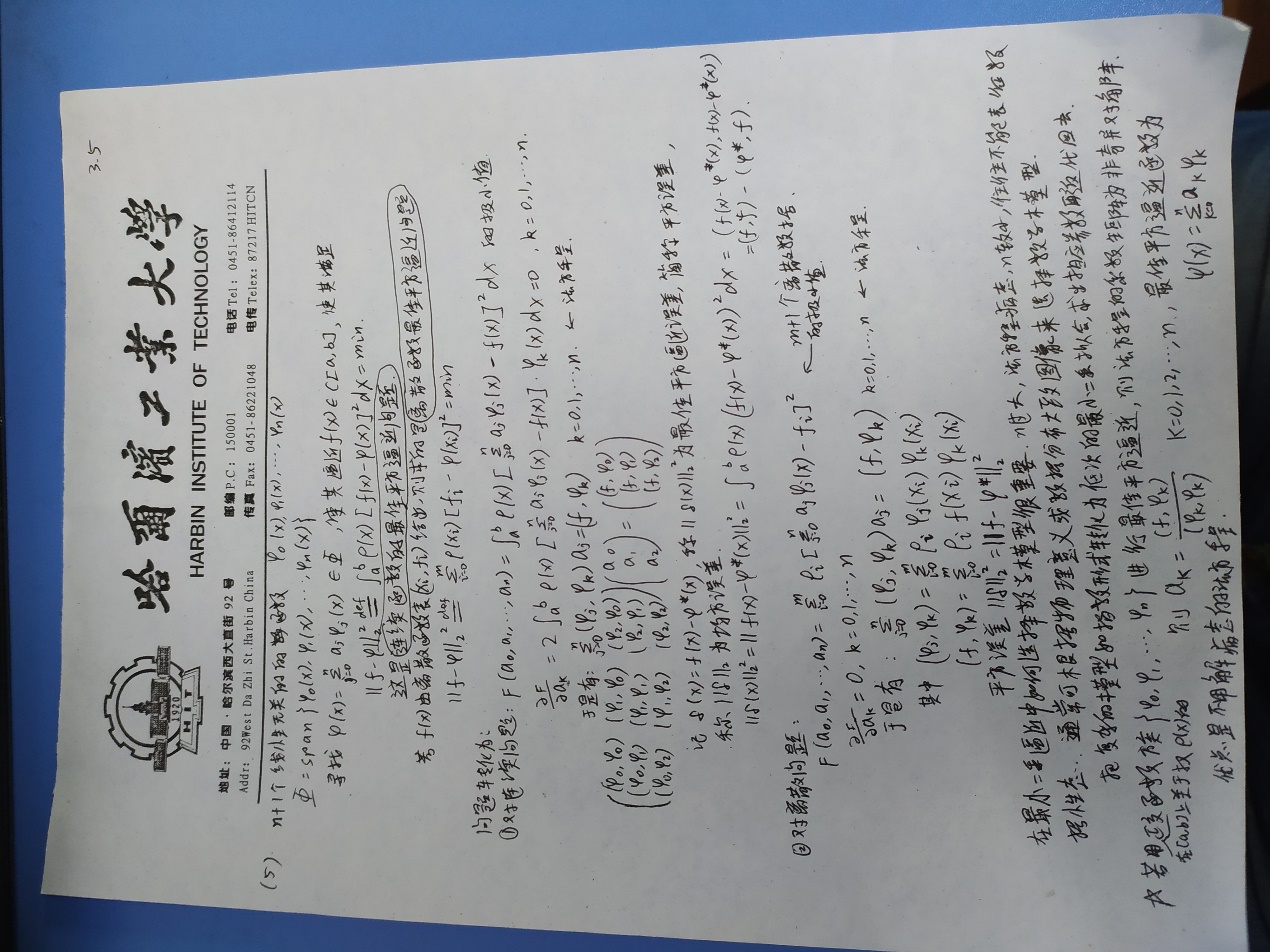 3.5
哈爾濱工業大學
HARBIN INSTITUTE OF TECHNOLOGY
1920
HIT
地址：中国·哈尔滨西大直街92号 邮编P.C：150001 电话Tel：0451-86412114
Addr：92West Da Zhi St.Harbin China 传真Fax：0451-86221048 电传Telex：87217HITCN
(5) n+1个线性无关的函数 φ₀(x), φ₁(x), …, φₙ(x)
Φ = span{φ₀(x), φ₁(x), …, φₙ(x)}
寻找 φ(x) = Σⁿⱼ₌₀ aⱼφⱼ(x) ∈ Φ, 使其逼近f(x) ∈ C[a,b], 使其满足
‖f-φ‖₂² def= ∫ₐᵇ ρ(x)[f(x)-φ(x)]²dx = min.
这是连续函数的最佳平方逼近问题
若f(x)由离散函数表(xᵢ, fᵢ)给出, 则求的是离散函数最佳平方逼近问题
‖f-φ‖₂² def= Σᵐᵢ₌₀ ρ(xᵢ)[fᵢ-φ(xᵢ)]² = min
问题转化为：
①对连续问题：F(a₀,a₁,…,aₙ) = ∫ₐᵇ ρ(x)[Σⁿⱼ₌₀ aⱼφⱼ(x) - f(x)]²dx 的极小值
∂F/∂aₖ = 2∫ₐᵇ ρ(x)[Σⁿⱼ₌₀ aⱼφⱼ(x) - f(x)]·φₖ(x)dx = 0, k=0,1,…,n.
于是有：Σⁿⱼ₌₀ (φⱼ, φₖ)aⱼ = (f, φₖ) k=0,1,…,n. ← 法方程.
(φ₀,φ₀) (φ₁,φ₀) (φ₂,φ₀) (a₀) = (f,φ₀)
(φ₀,φ₁) (φ₁,φ₁) (φ₂,φ₁) (a₁) = (f,φ₁)
(φ₀,φ₂) (φ₁,φ₂) (φ₂,φ₂) (a₂) (f,φ₂)
记 δ(x) = f(x)-φ*(x) 称‖δ(x)‖₂²为最佳平方逼近误差, 简称平方误差,
称‖δ‖₂为均方误差.
‖δ(x)‖₂² = ‖f(x)-φ*(x)‖₂² = ∫ₐᵇ ρ(x)(f(x)-φ*(x))²dx = (f(x)-φ*(x), f(x)-φ*(x))
= (f,f) - (φ*,f).
②对离散问题：
F(a₀,a₁,…,aₙ) = Σᵐᵢ₌₀ ρᵢ[Σⁿⱼ₌₀ aⱼφⱼ(xᵢ) - fᵢ]² ← m+1个离散数据.
的极小值
∂F/∂aₖ = 0, k=0,1,…,n
于是有：Σⁿⱼ₌₀ (φⱼ, φₖ)aⱼ = (f, φₖ) k=0,1,…,n ← 法方程.
其中 (φⱼ,φₖ) = Σᵐᵢ₌₀ ρᵢφⱼ(xᵢ)φₖ(xᵢ)
(f,φₖ) = Σᵐᵢ₌₀ ρᵢf(xᵢ)φₖ(xᵢ)
平方误差‖δ‖₂² = ‖f-φ*‖₂²
在最小二乘逼近中如何选择数学模型很重要. n过大, 法方程病态, n较小, 往往不能表征数
据性态. 通常可根据物理意义或数据分布大致图像来选择数学模型.
把复杂的模型如指数形式转化为低次的最小二乘拟合求出相应参数取近似回去.
☆若用正交函数族{φ₀, φ₁, …, φₙ}进行最佳平方逼近, 则法方程的系数矩阵为非奇异对角阵.
在[a,b]上关于权ρ(x)的 则 aₖ = (f,φₖ)/(φₖ,φₖ) k=0,1,2,…,n, 最佳平方逼近函数为
φ(x) = Σⁿₖ₌₀ aₖφₖ
优点是不用解病态的法方程.